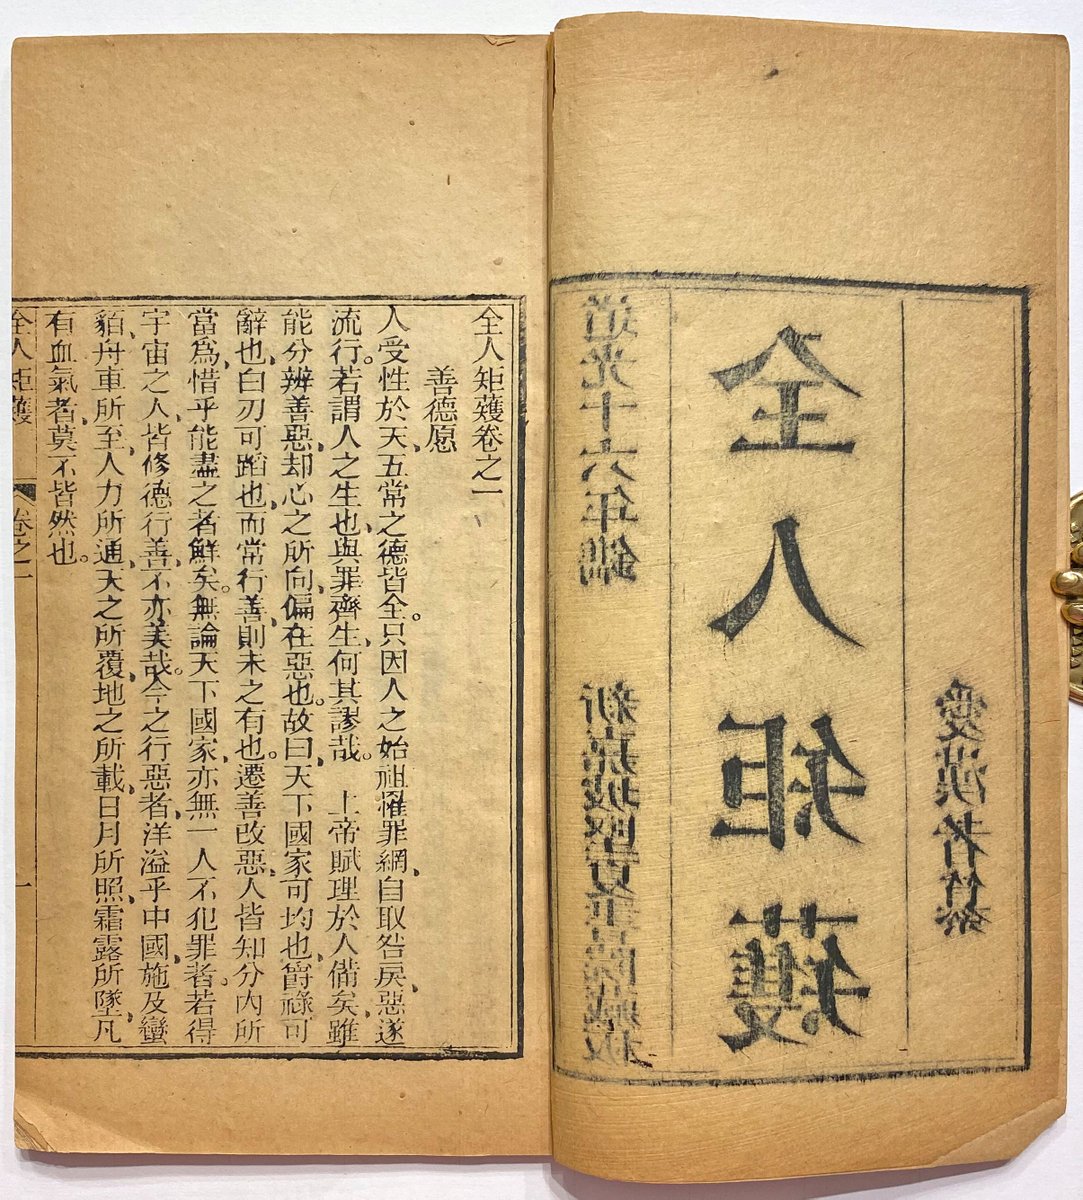 愛漢者纂
全人矩矱
道光十六年鐫 新嘉坡堅夏書院藏板
全人矩矱卷之一
善德愿
人受性於天、五常之德皆全。只因人之始祖罹罪網、自取咎戾、惡遂
流行。若謂人之生也、與罪齊生、何其謬哉。 上帝賦理於人備矣、雖
能分辨善惡、却心之所向、偏在惡也。故曰、天下國家可均也、爵祿可
辭也、白刃可蹈也、而常行善、則未之有也。遷善改惡、人皆知分內所
當爲、惜乎能盡之者鮮矣。無論天下國家、亦無一人不犯罪者。若得
宇宙之人、皆修德行善、不亦美哉。今之行惡者、洋溢乎中國、施及蠻
貊、舟車所至、人力所通、天之所覆、地之所載、日月所照、霜露所墜、凡
有血氣者、莫不皆然也。
全人矩矱 卷之一 一